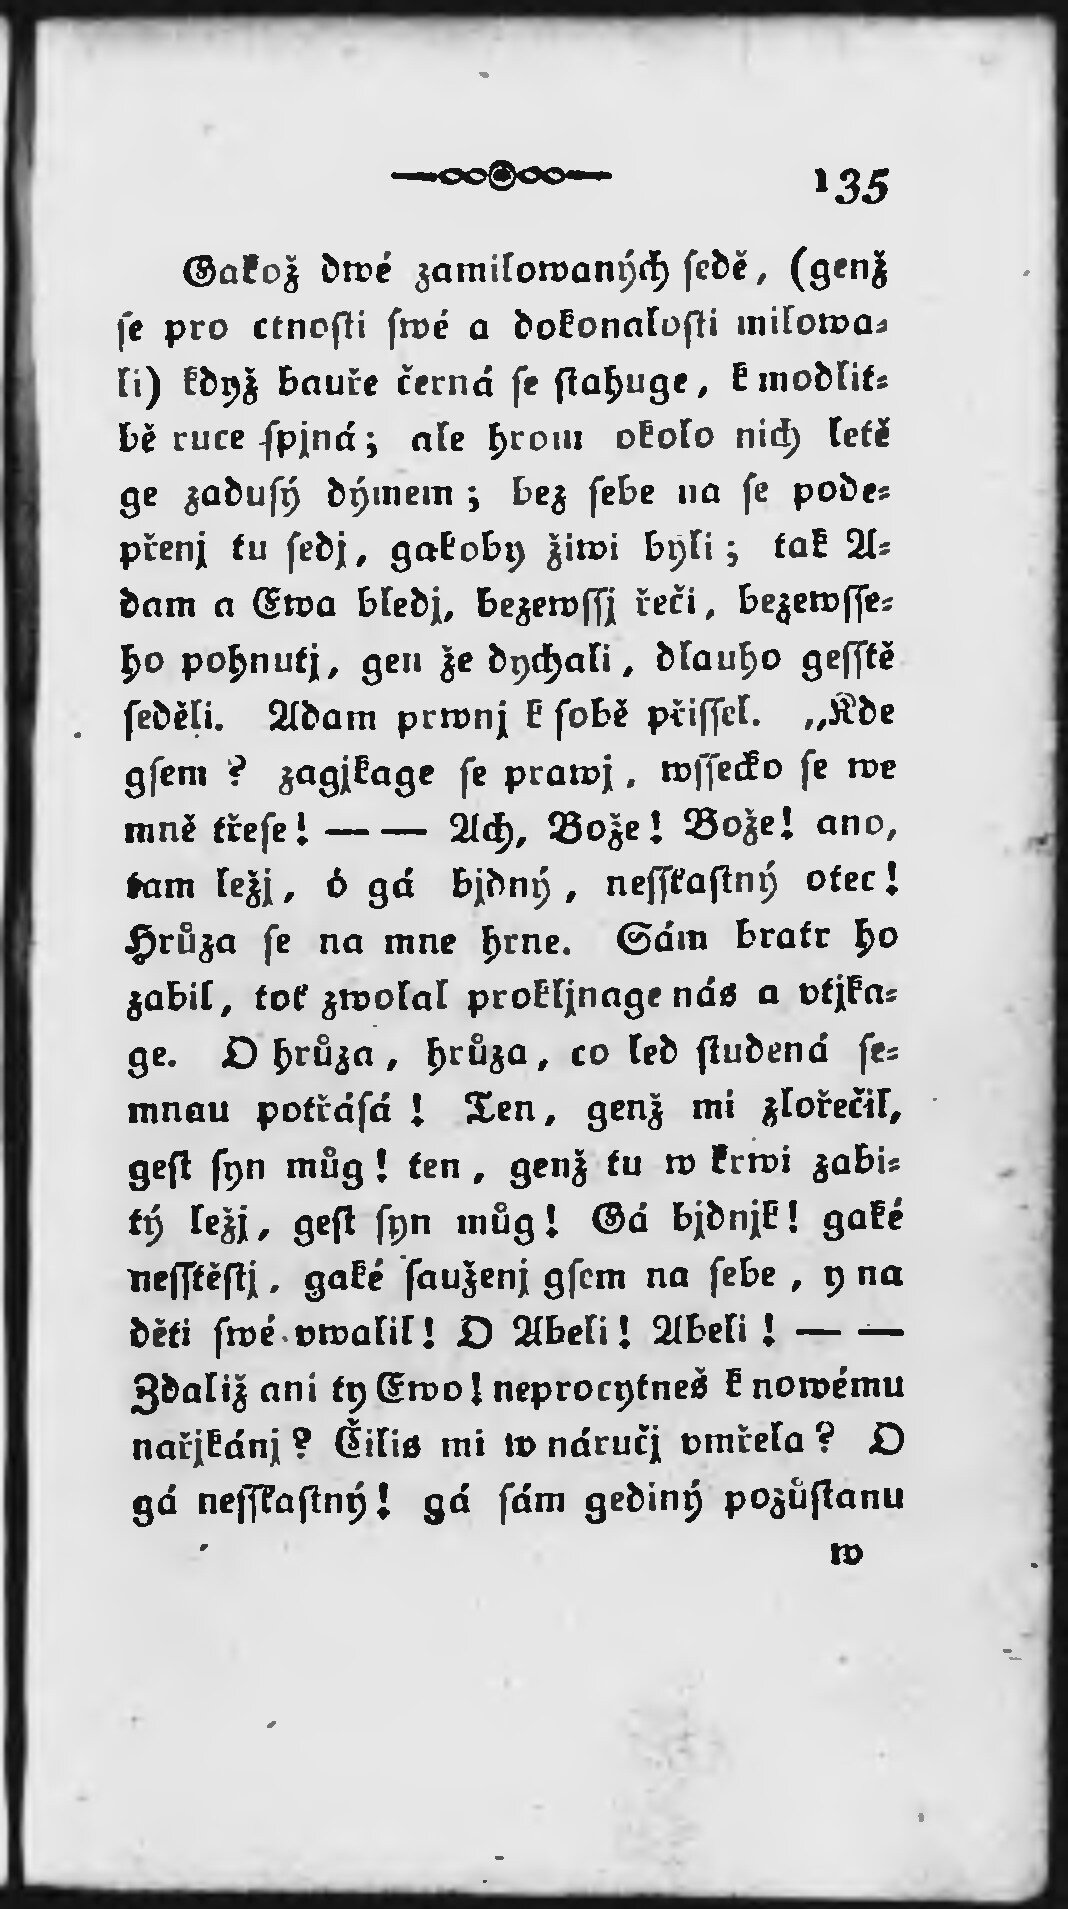 135
Gakož dwé zamilowaných ſedě, (genž
ſe pro ctnoſti ſwé a dokonaloſti milowa⸗
li) když bauře černá ſe ſtahuge, k modlit⸗
bě ruce ſpjná; ale hrom okolo nich letě
ge zaduſý dýmem; bez ſebe na ſe pode⸗
přenj tu ſedj, gakoby žiwi byli; tak A⸗
dam a Ewa bledj, bezewſſj řeči, bezewſſe⸗
ho pohnutj, gen že dychali, dlauho geſſtě
ſeděli. Adam prwnj k ſobě přiſſel. „Kde
gſem? zagjkage ſe prawj, wſſecko ſe we
mně třeſe! — — Ach, Bože! Bože! ano,
tam ležj, ó gá bjdný, neſſťaſtný otec!
Hrůza ſe na mne hrne. Sám bratr ho
zabil, toť zwolal prokljnage nás a vtjka⸗
ge. O hrůza, hrůza, co led ſtudená ſe⸗
mnau potřáſá! Ten, genž mi zlořečil,
geſt ſyn můg! ten, genž tu w krwi zabi⸗
tý ležj, geſt ſyn můg! Gá bjdnjk! gaké
neſſtěſtj, gaké ſauženj gſem na ſebe, y na
děti ſwé vwalil! O Abeli! Abeli! — —
Zdaliž ani ty Ewo! neprocytneš k nowému
nařjkánj? Čilis mi w náručj vmřela? O
gá neſſťaſtný! gá ſám gediný pozůſtanu
w